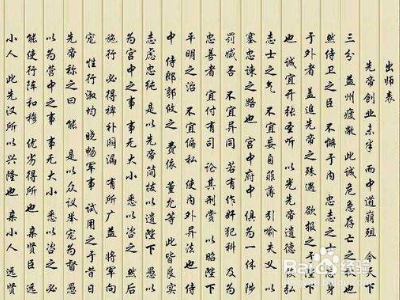 出师表
先帝创业未半 而中道崩殂 今天下
三分 益州疲敝 此诚危急存亡之秋也
然侍卫之臣 不懈于内 忠志之士 忘身
于外者 盖追先帝之殊遇 欲报之于陛下
也 诚宜开张圣听 以光先帝遗德 恢弘
志士之气 不宜妄自菲薄 引喻失义 以
塞忠谏之路也 宫中府中 俱为一体 陟
罚臧否 不宜异同 若有作奸犯科 及为
忠善者 宜付有司 论其刑赏 以昭陛下
平明之治 不宜偏私 使内外异法也 侍
中 侍郎郭攸之 费依 董允等 此皆良实
志虑忠纯 是以先帝简拔以遗陛下 愚以
为宫中之事 事无大小 悉以咨之 然后
施行 必得裨补阙漏 有所广益 将军向
宠 性行淑均 晓畅军事 试用之于昔日
先帝称之曰 能 是以众议举宠为督 愚
以为营中之事 事无大小 悉以咨之 必
能使行阵和穆 优劣得所也 亲贤臣 远
小人 此先汉所以兴隆也 亲小人 远贤